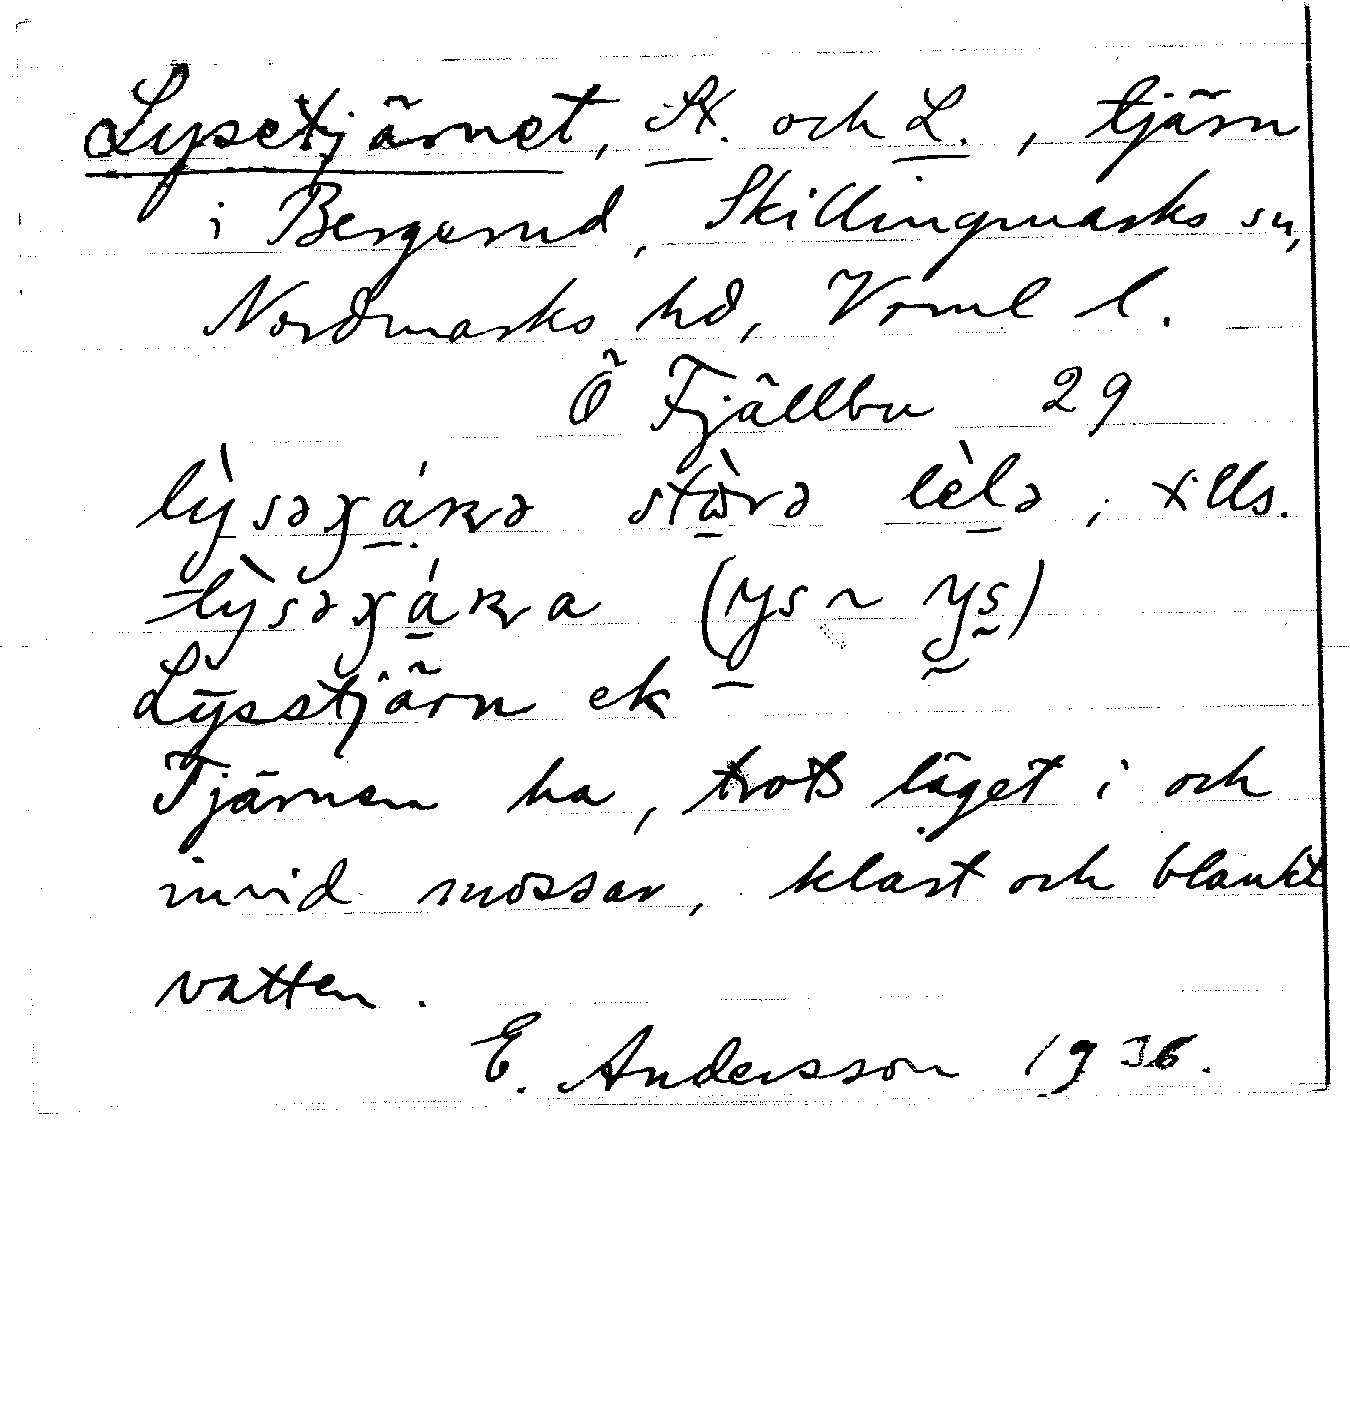 Lysetjärnet, St. och L., tjärn
i Bergerud, Skillingmarks sn,
Nordmarks hd, Vrml l.
Ö Fjällbu 29
lỳsəɣánə stòrə lèlə, tills.
lỳsəɣána (ys ~ ys)
Lysstjärn ek
Tjärnen ha, trots läget i och
invid mossar, klart och blankt
vatten.
E. Andersson 1936.